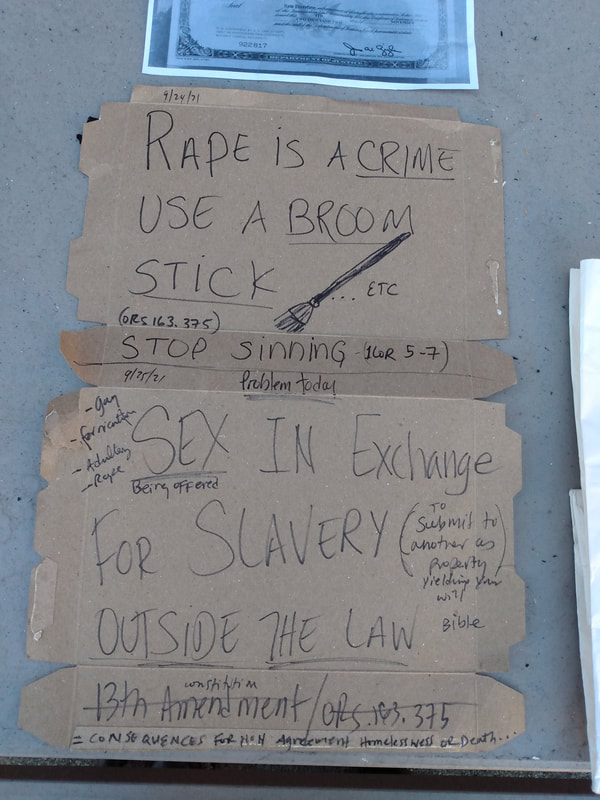 922817
9/24/21
RAPE IS A CRIME
USE A BROOM
STICK ... ETC
(ORS 163.375)
STOP sinning (1COR 5-7)
9/25/21 Problem today
- Gay
- fornication
- Adultery
- Rape
SEX IN Exchange
Being offered
FOR SLAVERY
(TO Submit to
another as
property
yielding your
will)
Bible
OUTSIDE THE LAW
constitution
13th Amendment/ORS.163.375
= CONSEQUENCES FOR NON Agreement Homelessness OR Death...